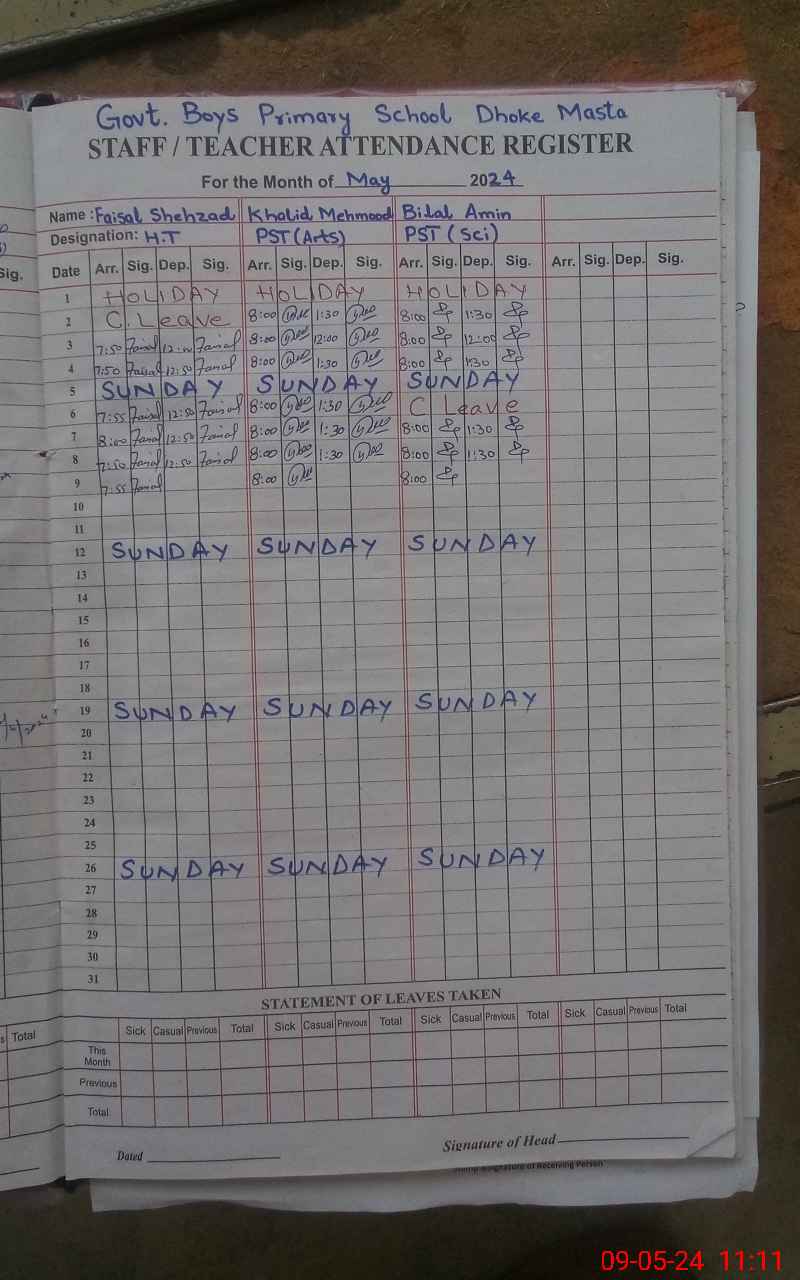 Govt. Boys Primary School Dhoke Masta
STAFF / TEACHER ATTENDANCE REGISTER
For the Month of May 2024
Name : Faisal Shehzad Khalid Mehmood Bilal Amin
Designation: H.T PST (Arts) PST (Sci)
Sig. Date Arr. Sig. Dep. Sig. Arr. Sig. Dep. Sig. Arr. Sig. Dep. Sig. Arr. Sig. Dep. Sig.
1 HOLIDAY HOLIDAY HOLIDAY
2 C. Leave 8:00 1:30 8:00 1:30
3 7:50 Faisal 12:00 Faisal 8:00 12:00 8:00 12:00
4 7:50 Faisal 12:50 Faisal 8:00 1:30 8:00 1:30
5 SUNDAY SUNDAY SUNDAY
6 7:55 Faisal 12:50 Faisal 8:00 1:30 C Leave
7 8:00 Faisal 12:50 Faisal 8:00 1:30 8:00 1:30
8 7:50 Faisal 12:50 Faisal 8:00 1:30 8:00 1:30
9 7:55 Faisal 8:00 8:00
10
11
12 SUNDAY SUNDAY SUNDAY
13
14
15
16
17
18
19 SUNDAY SUNDAY SUNDAY
20
21
22
23
24
25
26 SUNDAY SUNDAY SUNDAY
27
28
29
30
31
STATEMENT OF LEAVES TAKEN
Total Sick Casual Previous Total Sick Casual Previous Total Sick Casual Previous Total Sick Casual Previous Total
This
Month
Previous
Total
Dated Signature of Head
Signature of Receiving Person
09-05-24 11:11